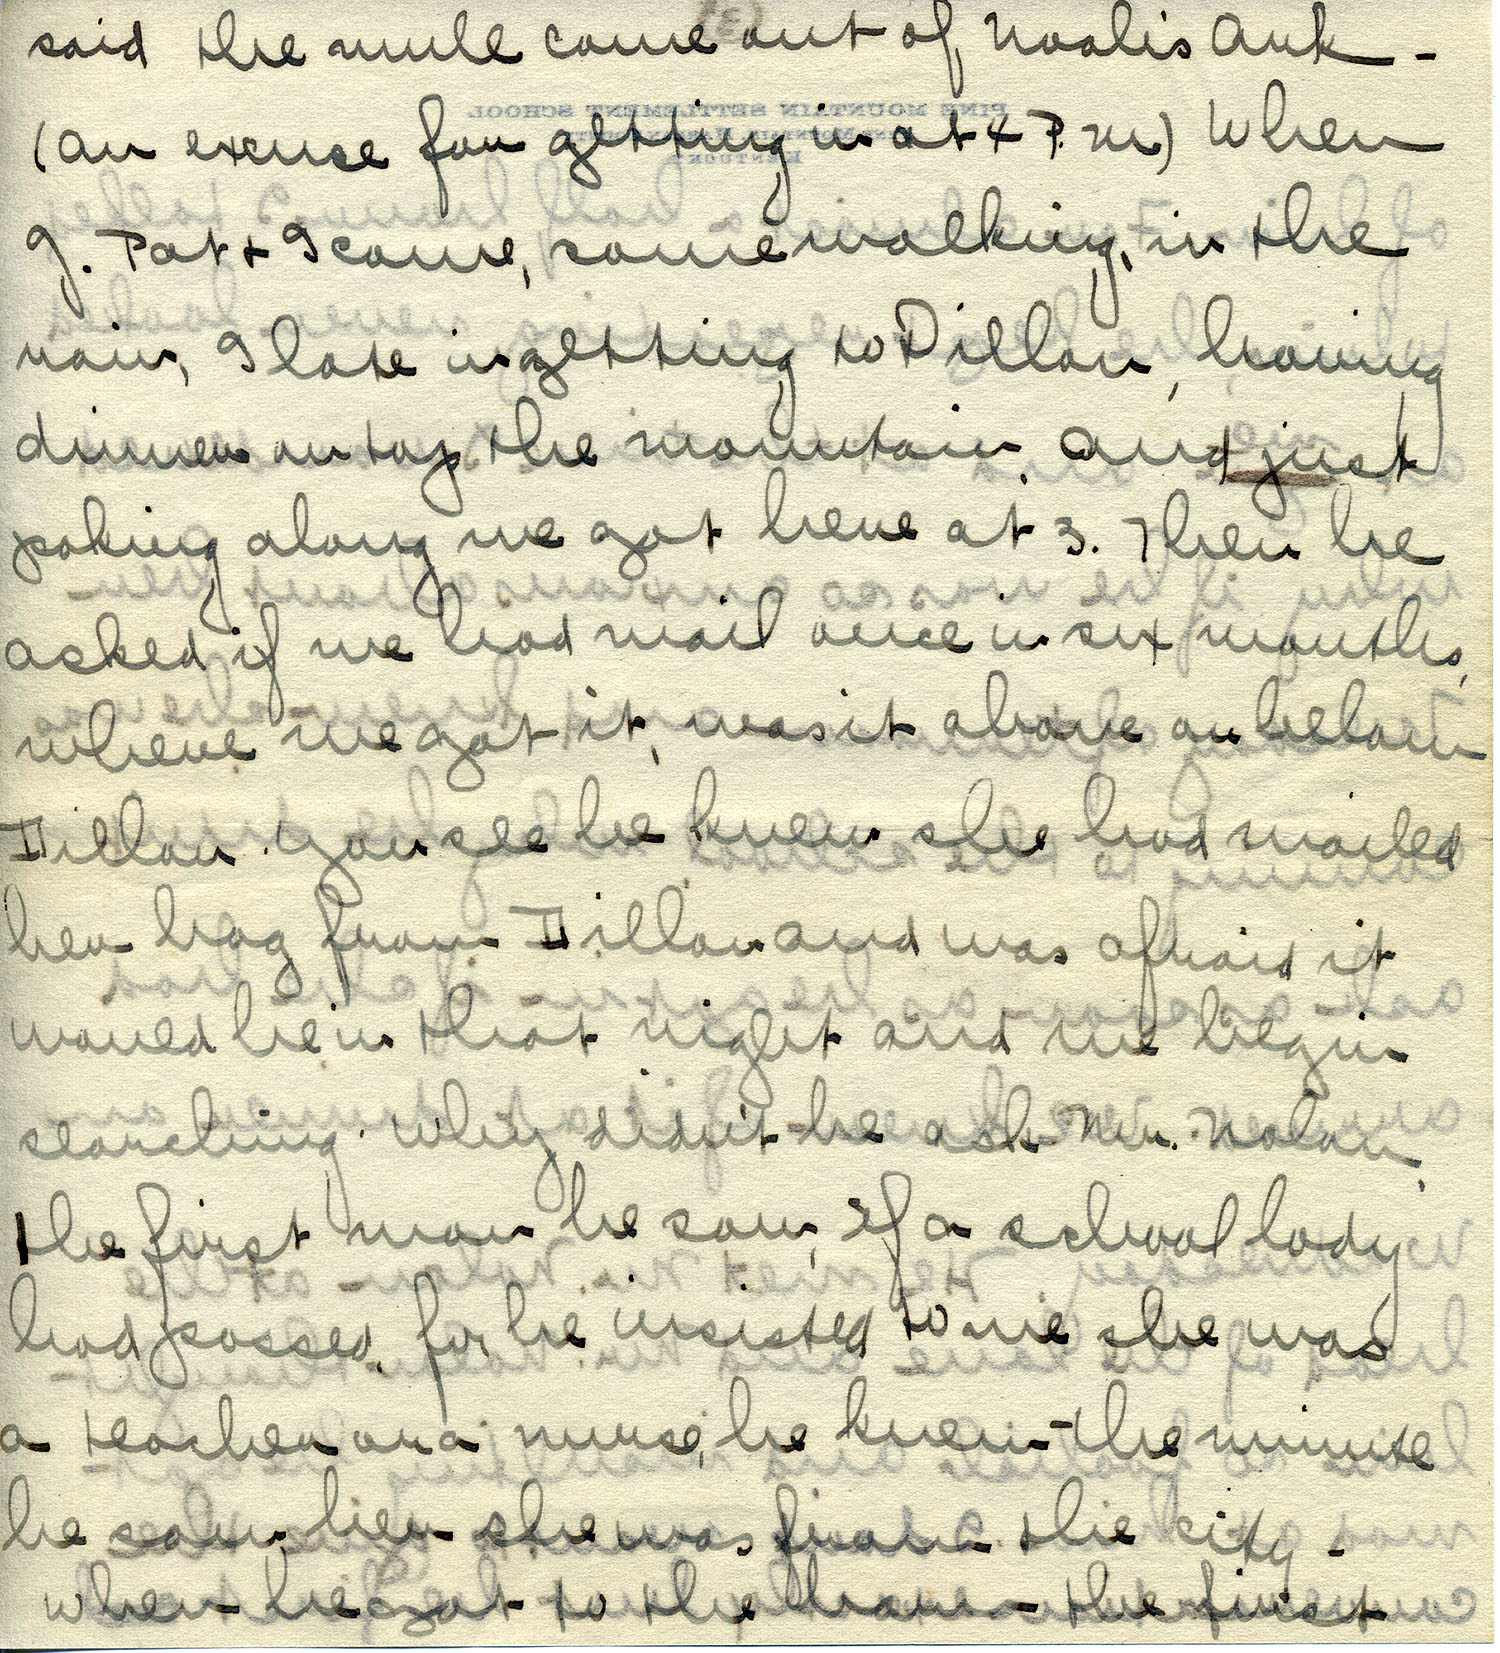 said the mule come out of Noahs Ark -
(an excuse for getting in at 4 P.M) When
g. Pat & I came, some walking, in the
rain, I late in getting to Dillon, having
dinner on top the mountain and just
poking along we got here at 3. Then he
asked if we had mail once in six months,
where we got it, was it above or below
Dillon. You see he knew she had mailed
her bag from Dillon and was afraid it
would be in that night and we begin
searching. Why didn't he ask Mr. Nolan,
the first man he saw, if a school lady
had passed, for he insisted to me she was
a teacher or a nurse, he knew the minute
he saw her she was from the city -
when he got to the barn - the first
PINE MOUNTAIN SETTLEMENT SCHOOL
KENTUCKY